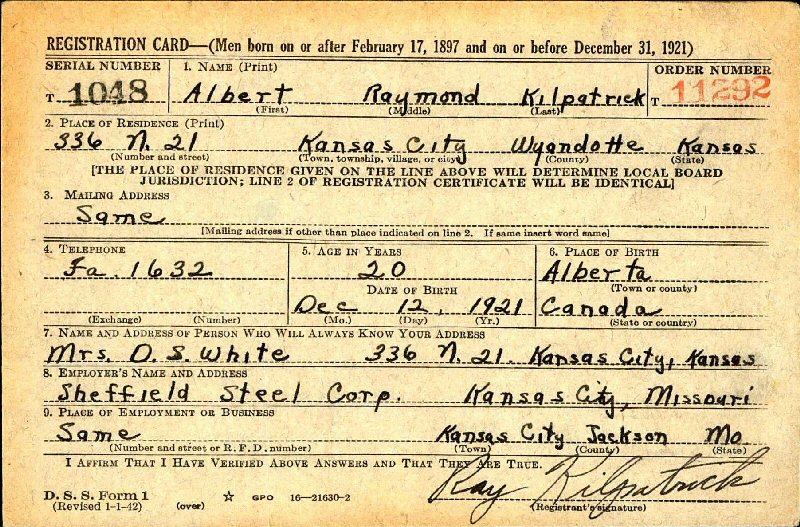 REGISTRATION CARD—(Men born on or after February 17, 1897 and on or before December 31, 1921)
SERIAL NUMBER 1. NAME (Print) ORDER NUMBER
T 1048 Albert Raymond Kilpatrick T 11292
(First) (Middle) (Last)
2. PLACE OF RESIDENCE (Print)
336 N. 21 Kansas City Wyandotte Kansas
(Number and street) (Town, township, village, or city) (County) (State)
[THE PLACE OF RESIDENCE GIVEN ON THE LINE ABOVE WILL DETERMINE LOCAL BOARD
JURISDICTION; LINE 2 OF REGISTRATION CERTIFICATE WILL BE IDENTICAL]
3. MAILING ADDRESS
Same
[Mailing address if other than place indicated on line 2. If same insert word same]
4. TELEPHONE 5. AGE IN YEARS 6. PLACE OF BIRTH
Fa. 1632 20 Alberta
DATE OF BIRTH (Town or county)
Dec 12, 1921 Canada
(Exchange) (Number) (Mo.) (Day) (Yr.) (State or country)
7. NAME AND ADDRESS OF PERSON WHO WILL ALWAYS KNOW YOUR ADDRESS
Mrs. O. S. White 336 N. 21. Kansas City, Kansas
8. EMPLOYER'S NAME AND ADDRESS
Sheffield Steel Corp. Kansas City, Missouri
9. PLACE OF EMPLOYMENT OR BUSINESS
Same Kansas City Jackson Mo
(Number and street or R. F. D. number) (Town) (County) (State)
I AFFIRM THAT I HAVE VERIFIED ABOVE ANSWERS AND THAT THEY ARE TRUE.
Ray Kilpatrick
D. S. S. Form 1
(Revised 1-1-42) (over) ☆ GPO 16—21630-2 (Registrant's signature)